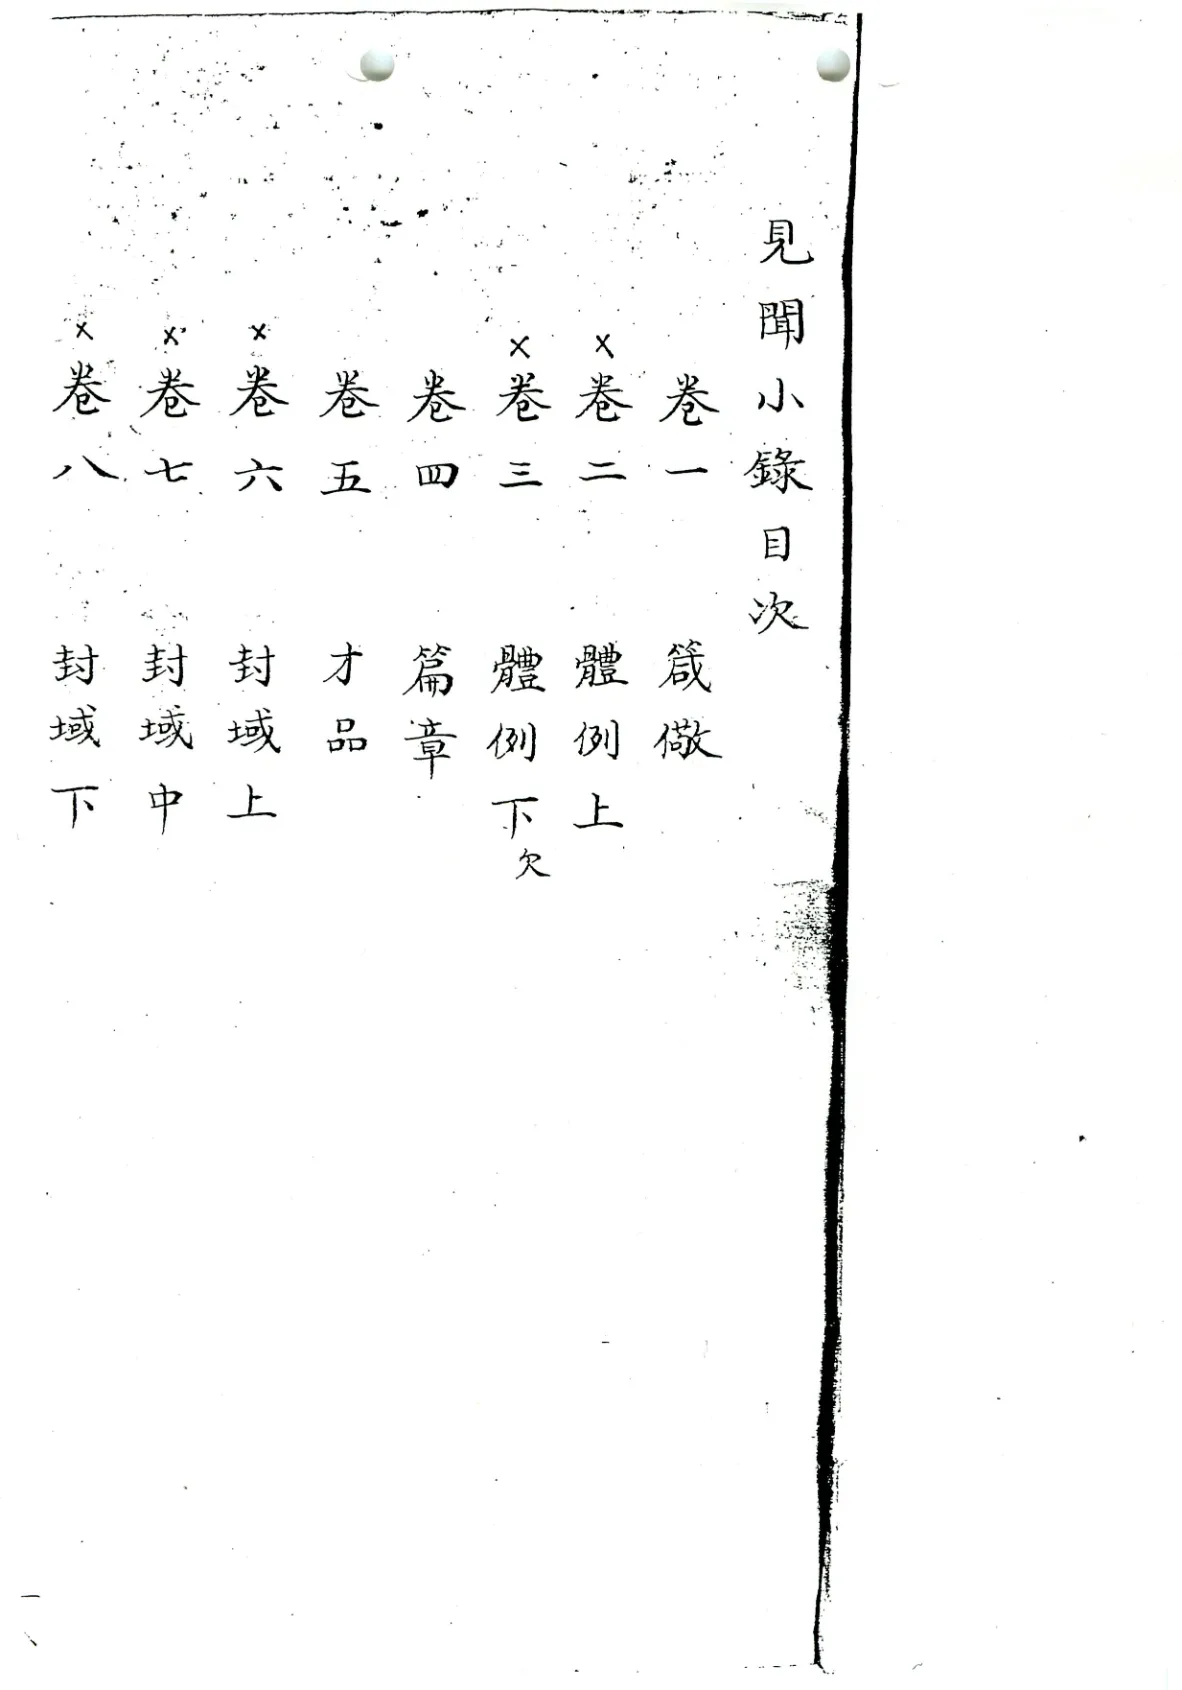 見聞小錄目次
卷一 箴儆
×卷二 體例上
×卷三 體例下欠
卷四 篇章
卷五 才品
×卷六 封域上
×卷七 封域中
×卷八 封域下